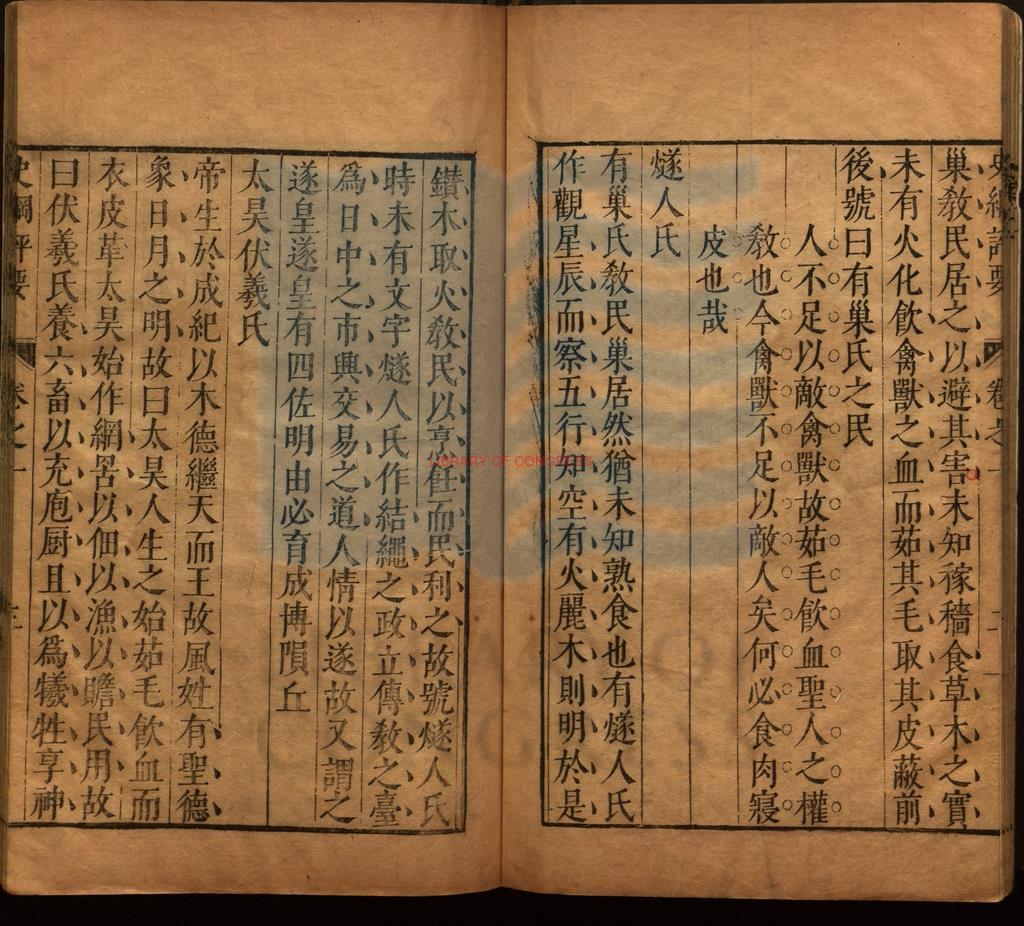 史綱評要 卷之一
巢教民居之以避其害未知稼穡食草木之實
未有火化飲禽獸之血而茹其毛取其皮蔽前
後號曰有巢氏之民
人不足以敵禽獸故茹毛飲血聖人之權
教也今禽獸不足以敵人矣何必食肉寢
皮也哉
燧人氏
有巢氏教民巢居然猶未知熟食也有燧人氏
作觀星辰而察五行知空有火麗木則明於是
鑽木取火教民以烹飪而民利之故號燧人氏
時未有文字燧人氏作結繩之政立傳教之臺
爲日中之市興交易之道人情以遂故又謂之
遂皇遂皇有四佐明由必育成博隕丘
太昊伏羲氏
帝生於成紀以木德繼天而王故風姓有聖德
象日月之明故曰太昊人生之始茹毛飲血而
衣皮革太昊始作網罟以佃以漁以贍民用故
曰伏羲氏養六畜以充庖厨且以爲犧牲享神
史綱評要 卷之一
LIBRARY OF CONGRESS